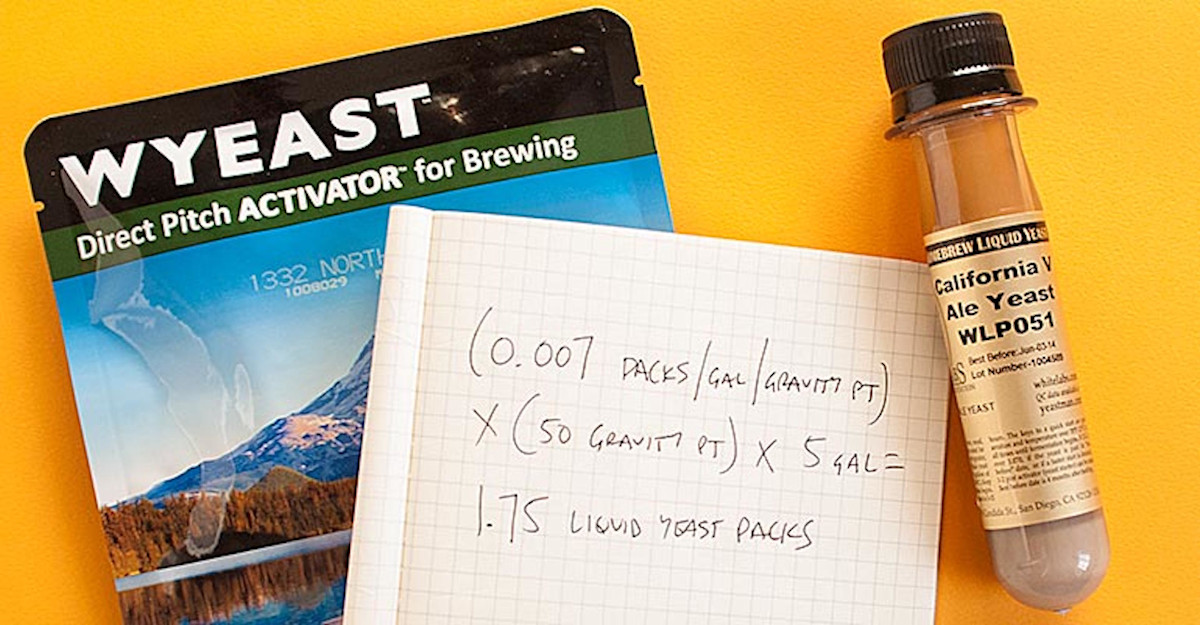 WYEAST
Direct Pitch ACTIVATOR™ for Brewing
1332 NORTH
1008029
(0.007 PACKS/GAL/GRAVITY PT)
X (50 GRAVITY PT) X 5 GAL =
1.75 LIQUID YEAST PACKS
HOMEBREW LIQUID YEAST
California V
Ale Yeast
WLP051
Best Before: Jun-03-14
Lot Number-1004589
whitelabs.com
yeastman.com
YEAST
St., San Diego, CA